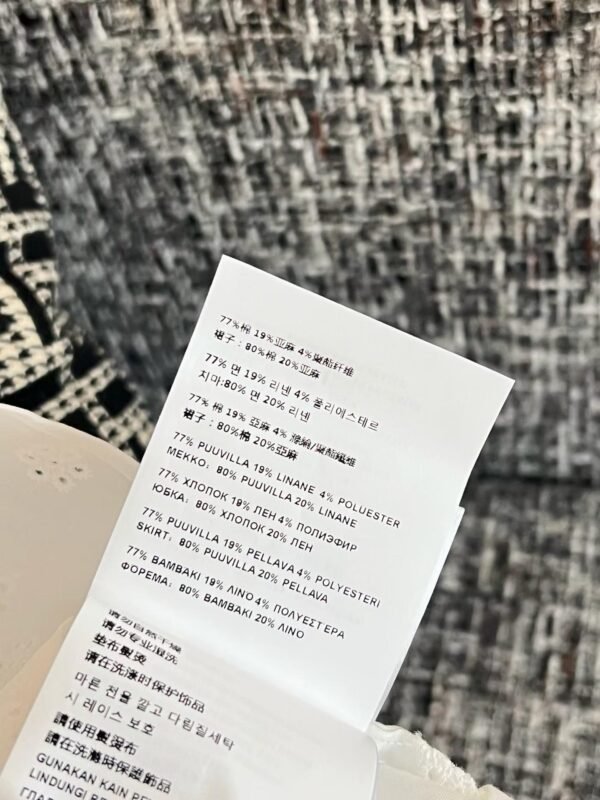 77%棉 19%亚麻 4%聚酯纤维
裙子：80%棉 20%亚麻
77% 면 19% 리넨 4% 폴리에스테르
치마:80% 면 20% 리넨
77% 棉 19% 亞麻 4% 滌綸/聚酯纖維
裙子：80%棉 20%亞麻
77% PUUVILLA 19% LINANE 4% POLUESTER
MEKKO: 80% PUUVILLA 20% LINANE
77% ХЛОПОК 19% ЛЕН 4% ПОЛИЭФИР
ЮБКА: 80% ХЛОПОК 20% ЛЕН
77% PUUVILLA 19% PELLAVA 4% POLYESTERI
SKIRT: 80% PUUVILLA 20% PELLAVA
77% BAMBAKI 19% ΛΙΝΟ 4% ΠΟΛΥΕΣΤΕΡΑ
ΦΟΡΕΜΑ: 80% BAMBAKI 20% ΛΙΝΟ
请勿自然干燥
请勿专业湿洗
垫布熨烫
请在洗涤时保护饰品
마른 천을 깔고 다림질세탁
시 레이스 보호
請使用熨燙布
請在洗滌時保護飾品
GUNAKAN KAIN
LINDUNGI